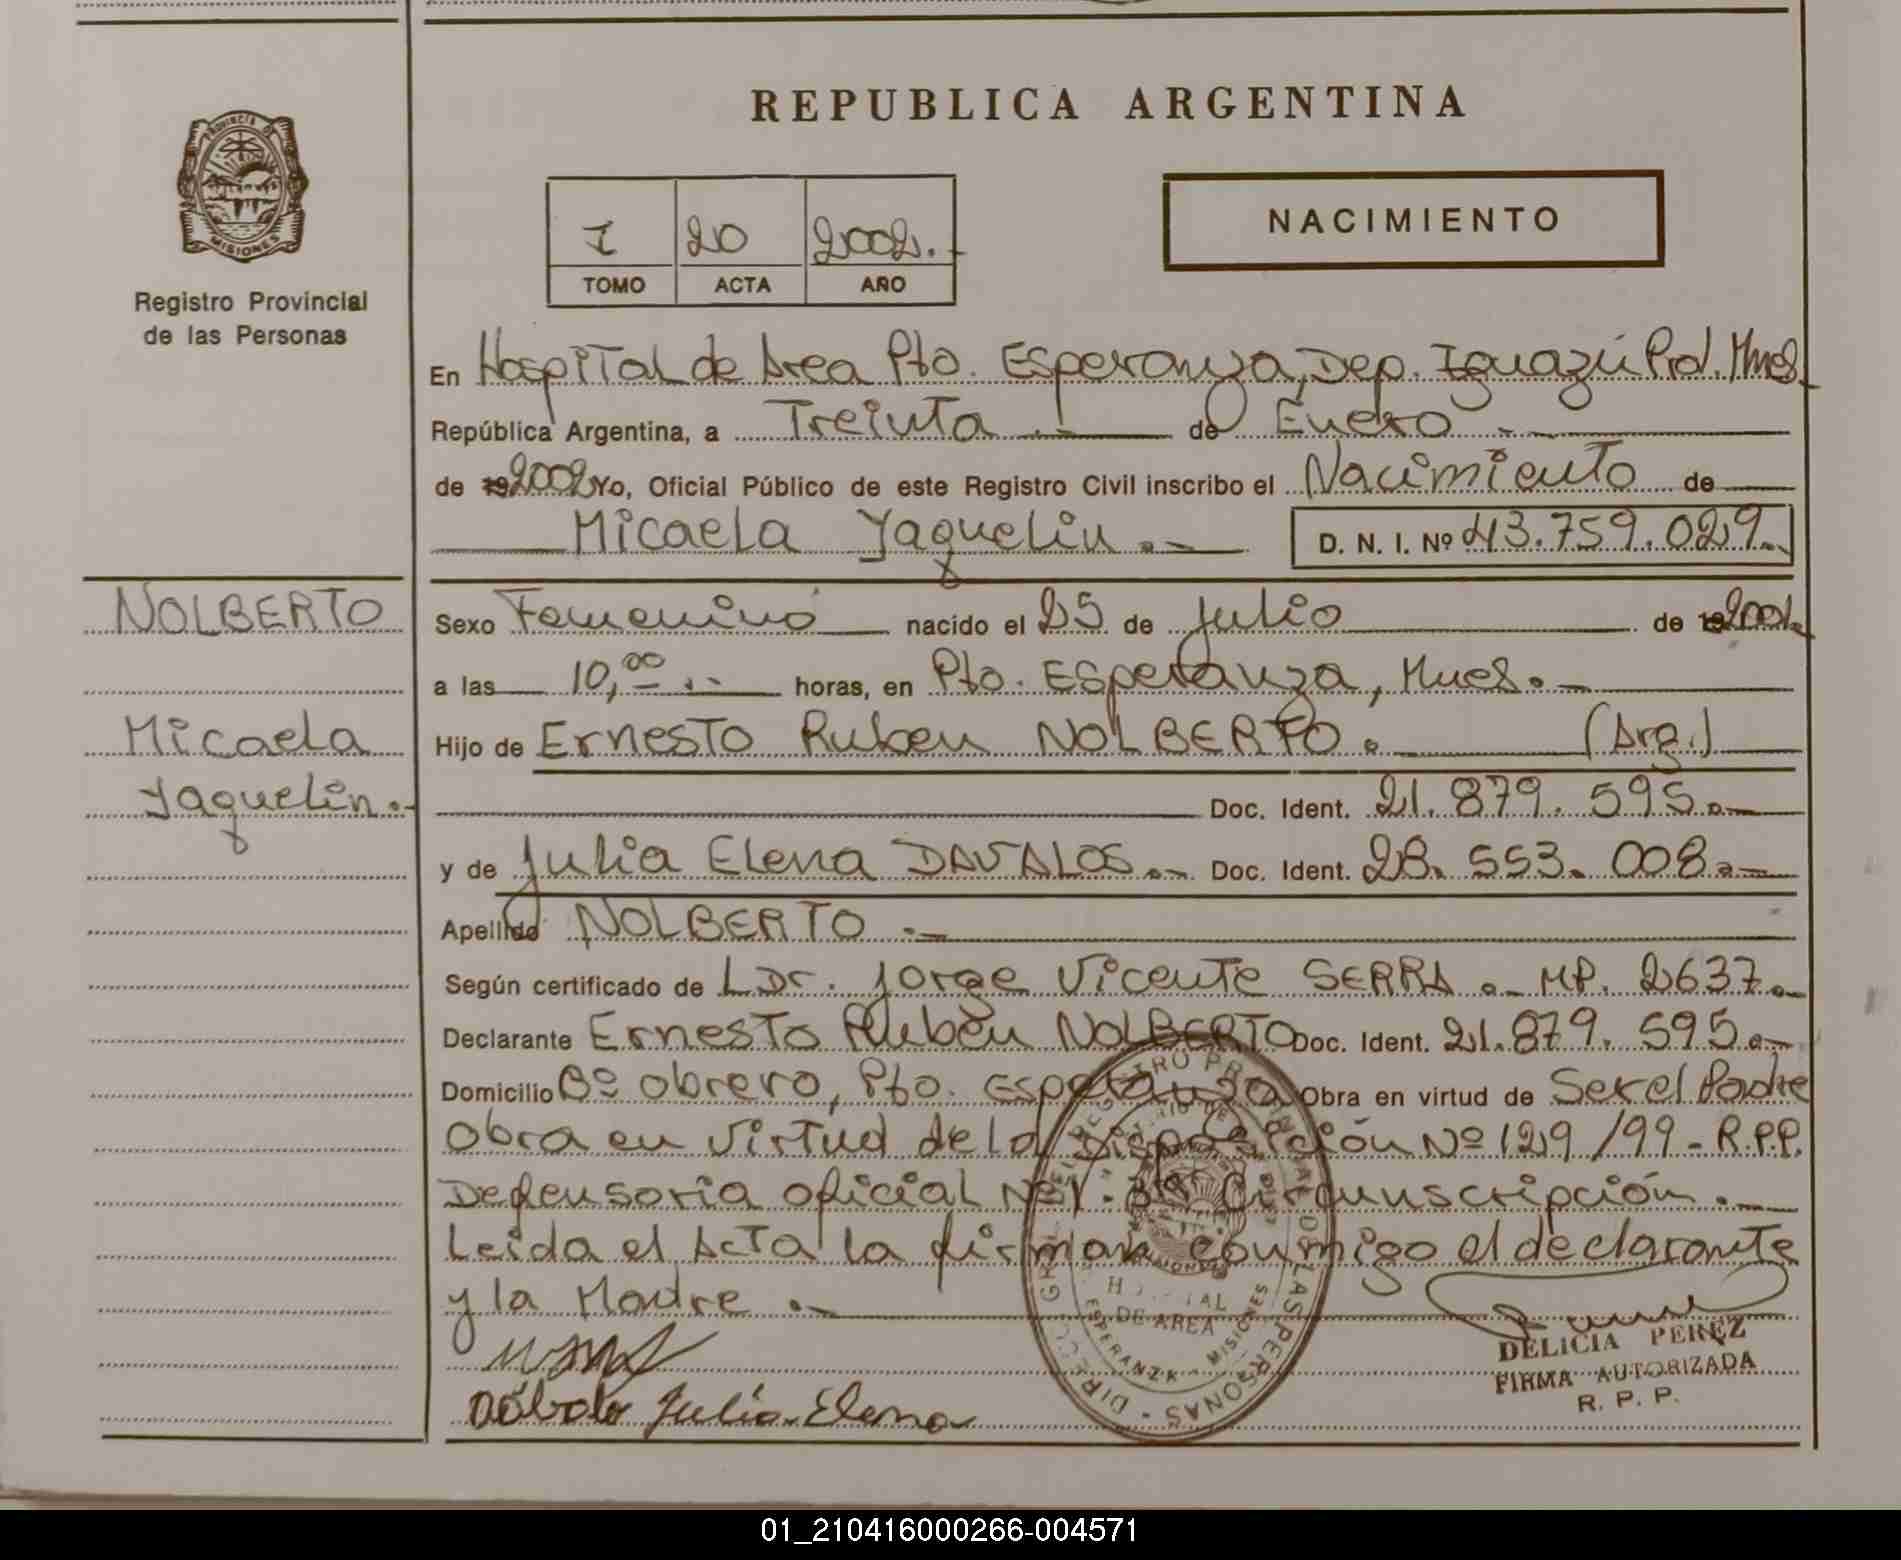 REPUBLICA ARGENTINA
PROVINCIA DE
MISIONES
Registro Provincial
de las Personas
I 20 2002.-
TOMO ACTA AÑO
NACIMIENTO
En Hospital de Area Pto. Esperanza, Dep. Iguazú Prov. Mnes.
República Argentina, a Treinta .- de Enero .-
de 19 2002 Yo, Oficial Público de este Registro Civil inscribo el Nacimiento de
Micaela Yaquelin .- D. N. I. Nº 43.759.029.-
NOLBERTO
Micaela
Yaquelin.-
Sexo Femenino nacido el 25 de Julio de 19 2001.
a las 10,00 .- horas, en Pto. Esperanza, Mnes.-
Hijo de Ernesto Ruben NOLBERTO. (Arg.)
Doc. Ident. 21.879.595.-
y de Julia Elena DAVALOS.- Doc. Ident. 28.553.008.-
Apellido NOLBERTO .-
Según certificado de Dr. Jorge Vicente SERRA .- MP. 2637.-
Declarante Ernesto Rubén NOLBERTO Doc. Ident. 21.879.595.-
Domicilio Bº Obrero, Pto. Esperanza Obra en virtud de Ser el Padre
Obra en virtud de la Disposición Nº 129/99 - R.P.P.
Defensoria oficial Circunscripción .-
Leida el Acta la firman conmigo el declarante
y la Madre .-
Julia Elena
DIRECC. GRAL. DEL REGISTRO PROVINCIAL DE LAS PERSONAS
MISIONES
HOSPITAL
DE AREA
ESPERANZA - MISIONES
DELICIA PEREZ
FIRMA AUTORIZADA
R. P. P.
01_210416000266-004571